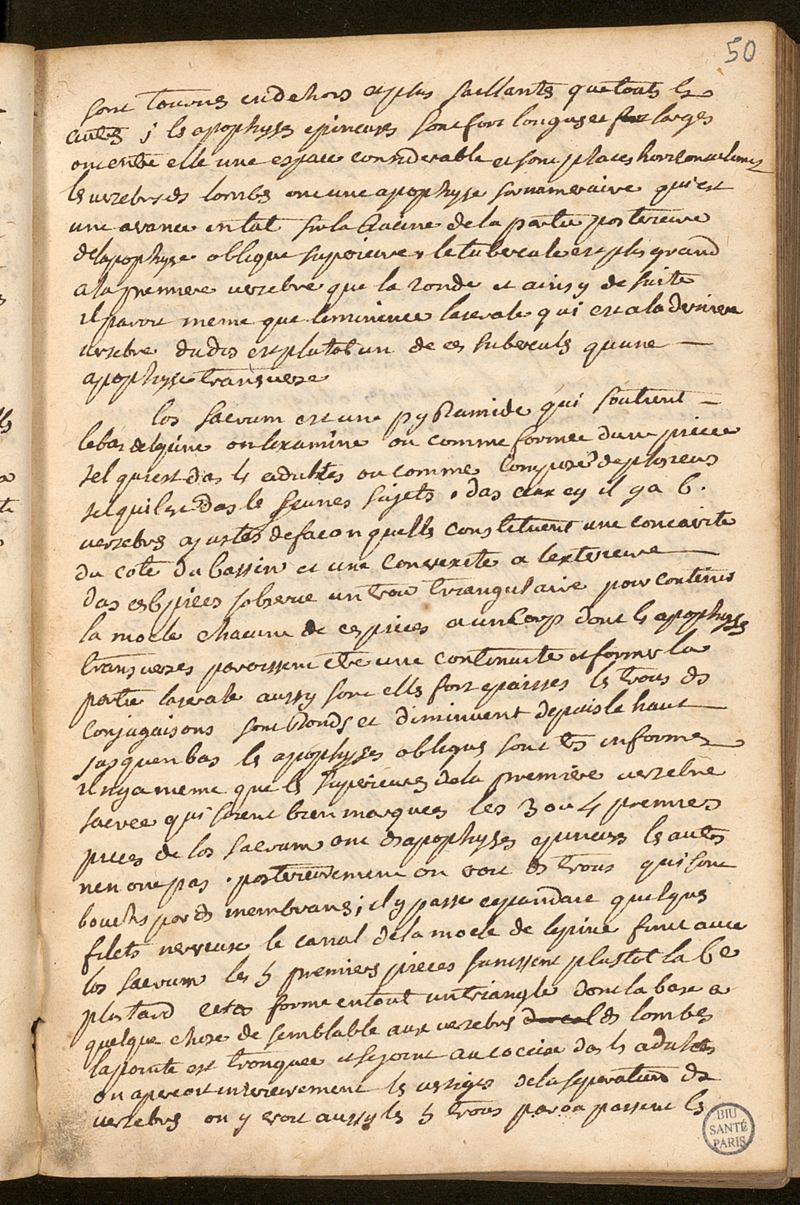 50
sont tournes endehors et plus saillants que touts les
autres ; les apophyses epineuses sont fort longues et larges
ont entre elle une espace considerable et sont places horisontalement
les vertebres des lombes ont une apophyse surnumeraire qui est
une avance en tat sur la Racine de la partie posterieure
de lapophyse oblique superieure, le tubercule est plus grand
a la premiere vertebre que la 2onde et ainsy de suite
il paroit meme que leminence laterale qui est a la derniere
vertebre du dos est plutot un de ces tubercules quune
apophyse transverse
los sacrum est une pyRamide qui soutient
le bas de lepine on lexamine ou comme formee dune piece
tel quiest das les adultes ou comme composé de plusieurs
tel quil est das le jeunes sujets. das ceux cy il y a 6.
vertebres ajustes de facon quells constituent une concavite
du coté du bassin et une convexite a lexterieure
das ces 6 pieces sobserve un trou triangulaire pour contenir
la moele chacune de ces pieces a un corp dont les apophyses
transverses paroissent etre une continuite et forme la
partie laterale aussy sont elle fort epaisses les trous des
conjugaisons sont Ronds et diminuent depuis le haut
jusquen bas les apophyses obliques sont informes
il ny a meme que les superieures de la premiere vertebre
sacree qui soient bien marques les 3 ou 4 premiers
pieces de los sacrum ont des apophyses epineuses les autres
nen ont pas. posterieurement on voit des trous qui sont
bouches par des membranes ; il y passe cependant quelques
filets nerveux le canal de la moele de lepine finit avec
los sacrum les 5 premiers pieces sunissent plustot la 6e
plus tard cet os forme entout un triangle dont la base a
quelque chose de semblable aux vertebres des lombes
la pointe est tronquee et se joint au coccix das les adultes
on apercoit interieurement les vestiges de la separation des
vertebres on y voit aussy les 5 trous par ou passent les
BIU
SANTÉ
PARIS